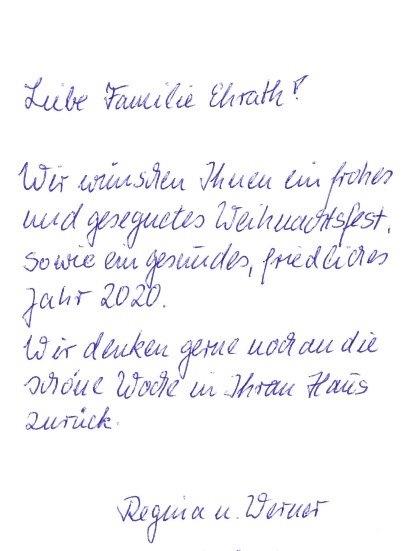 Liebe Familie Ehrath!
Wir wünschen Ihnen ein frohes
und gesegnetes Weihnachtsfest,
sowie ein gesundes, friedliches
Jahr 2020.
Wir denken gerne noch an die
schöne Woche in Ihrem Haus
zurück.
Regina u. Werner